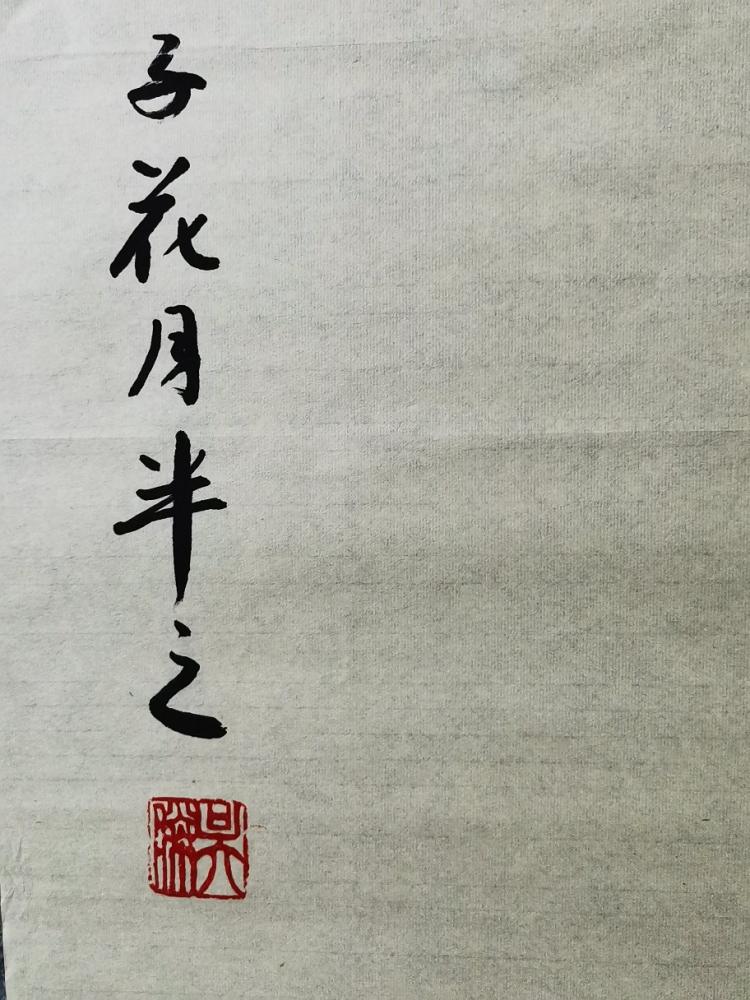 子花月半之